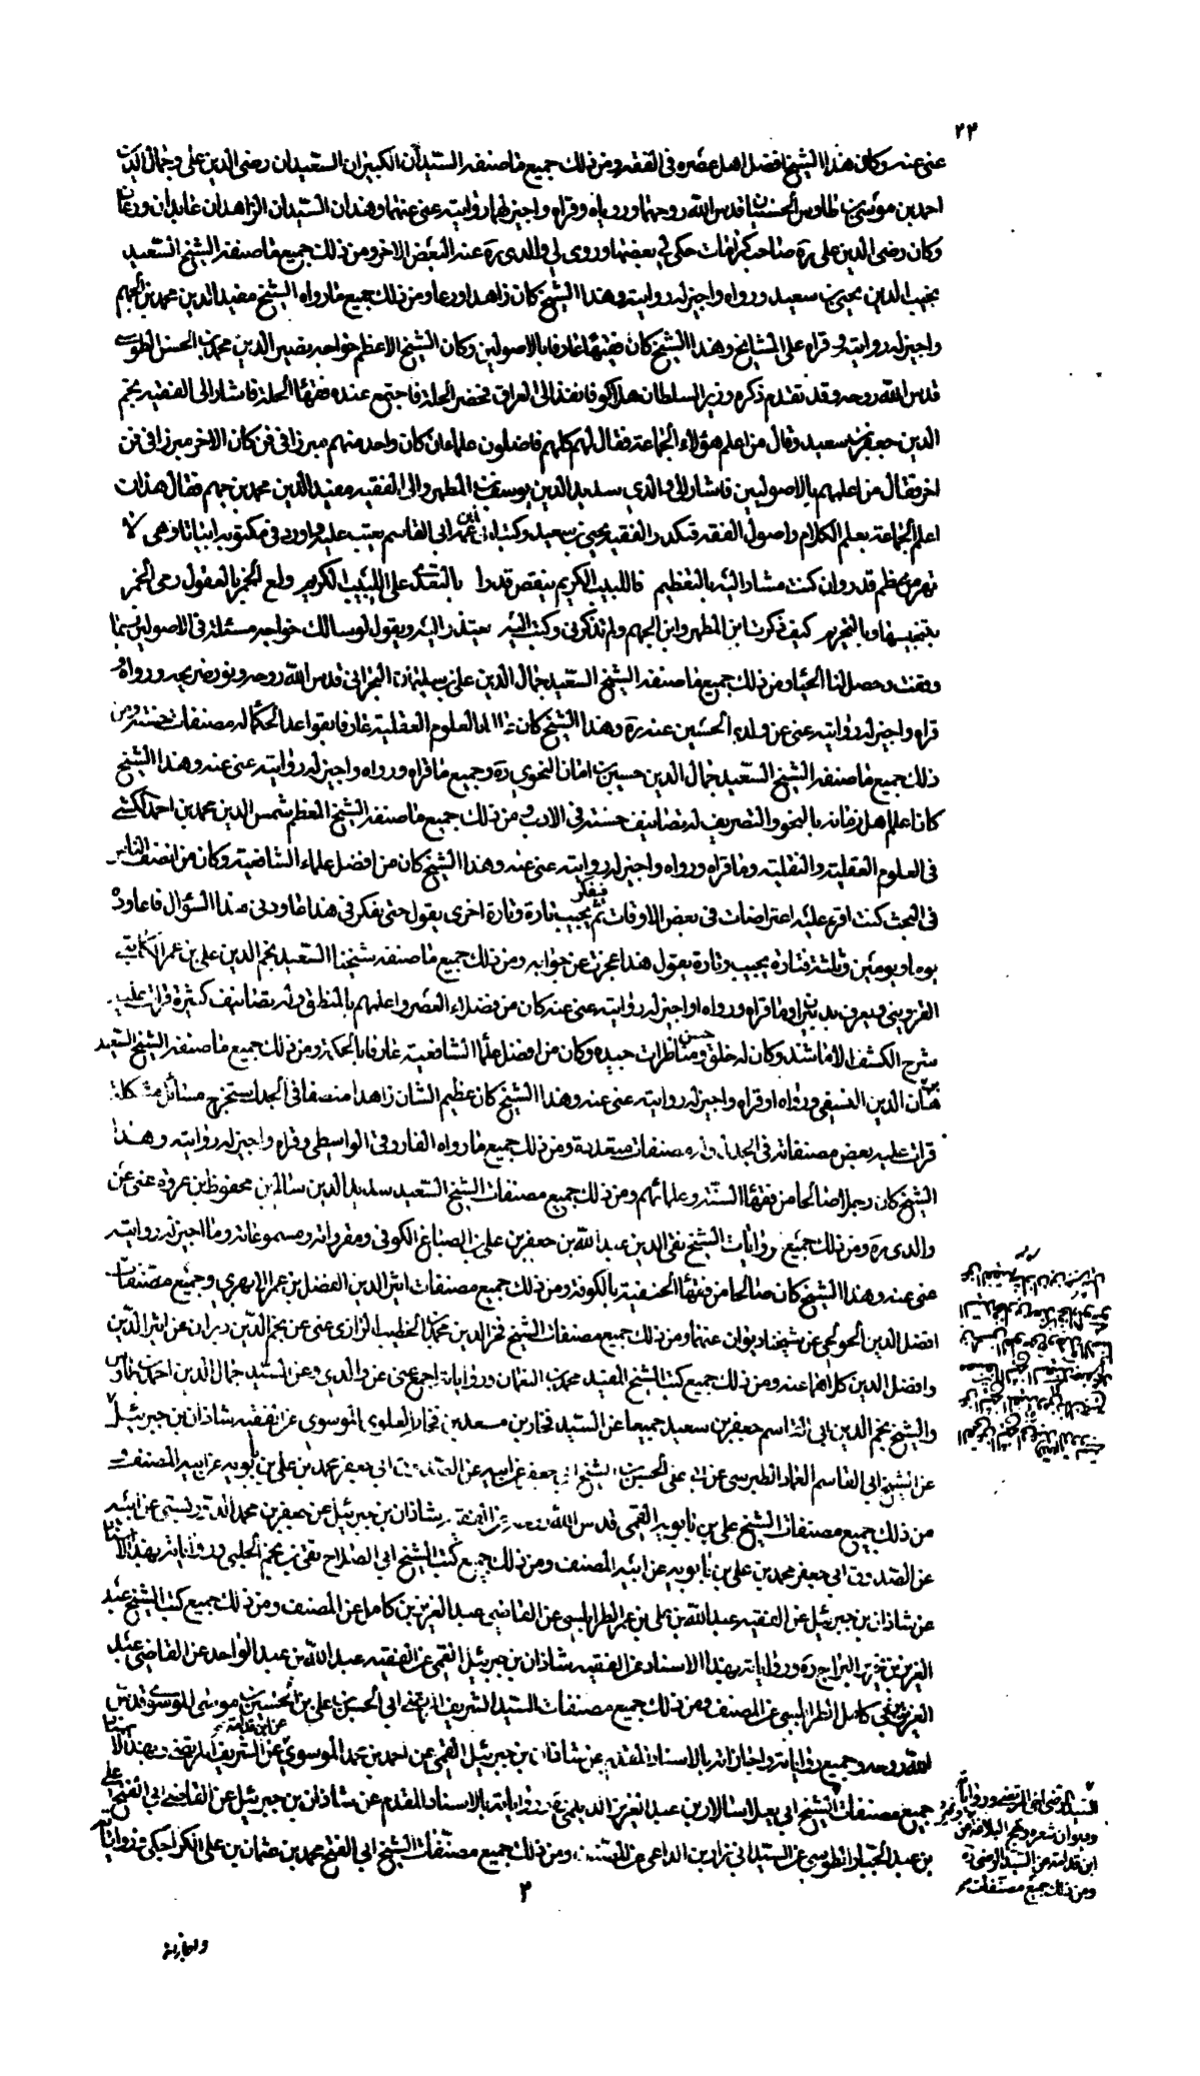 ٢٣
عنى عنه وكان هذا الشيخ افضل اهل عصره فى الفقه ومن ذلك جميع ما صنفه السيدان الكبيران السعيدان رضى الدين على وجمال الدين
احمد بن موسى بن طاوس الحسنيان قدس الله روحهما وروياه وقراه واجيز لهما روايته عنى عنهما وهذان السيدان الزاهدان عابدان ورعان
وكان رضى الدين على ره صاحب كرامات حكى لى بعضها وروى لى والدى ره عنه البعض الاخر ومن ذلك جميع ما صنفه الشيخ السعيد
نجيب الدين يحيى بن سعيد ورواه واجيز له روايته وهذا الشيخ كان زاهدا ورعا ومن ذلك جميع ما رواه الشيخ مفيد الدين محمد بن الجهم
واجيز له روايته وقراه على المشايخ وهذا الشيخ كان فقيها عارفا بالاصولين وكان الشيخ الاعظم خواجه نصير الدين محمد بن الحسن الطوسى
قدس الله روحه وقد تقدم ذكره وزير السلطان هلاكو فانفذ الى العراق فحضر الحلة فاجتمع عنده فقهاء الحلة فاشار الى الفقيه نجم
الدين جعفر بن سعيد وقال من اعلم هؤلاء الجماعة فقال لهم كلهم فاضلون علماء ان كان واحد منهم مبرزا فى فن كان الاخر مبرزا فى فن
اخر فقال من اعلمهم بالاصولين فاشار الى والدى سديد الدين يوسف بن المطهر والى الفقيه مفيد الدين محمد بن جهم فقال هذان
اعلم الجماعة بعلم الكلام واصول الفقه فتكدر الفقيه يحيى بن سعيد وكتب الى ابن عمه ابى القاسم يعتب عليه واورد فى مكتوبه ابياتا وهى لا
تهن من عظيم قدر وان كنت مشارا اليه بالتعظيم فاللبيب الكريم ينقص قدرا بالتعدى على اللبيب الكريم ولع الخمر بالعقول رمى الخمر
بتنجيسها وبالتحريم كيف ذكرت ابن المطهر وابن الجهم ولم تذكرنى وكتب اليه يعتذر اليه ويقول لو سالك خواجه مسئلة فى الاصولين ربما
وقفت وحصل لنا الحياء ومن ذلك جميع ما صنفه الشيخ السعيد جمال الدين على بن سليمان البحرانى قدس الله روحه ونور ضريحه ورواه و
قراه واجيز له روايته عنى عن ولده الحسين عنه ره وهذا الشيخ كان عالما بالعلوم العقلية عارفا بقواعد الحكماء له مصنفات حسنة ومن
ذلك جميع ما صنفه الشيخ السعيد جمال الدين حسين بن اماز النحوى ره وجميع ما قراه ورواه واجيز له روايته عنى عنه وهذا الشيخ
كان اعلم اهل زمانه بالنحو والتصريف له تصانيف حسنة فى الادب ومن ذلك جميع ما صنفه الشيخ المعظم شمس الدين محمد بن احمد الكشى
فى العلوم العقلية والنقلية وما قراه ورواه واجيز له روايته عنى عنه وهذا الشيخ كان من افضل علماء الشافعية وكان من انصف الناس
فى البحث كنت اقرء عليه اعتراضات فى بعض الاوقات فيفكر ثم يجيب تارة وتارة اخرى يقول حتى نفكر فى هذا عاودنى هذا السؤال فاعاوده
يوما ويومين وثلثة فتارة يجيب وتارة يقول هذا عجزت عن جوابه ومن ذلك جميع ما صنفه شيخنا السعيد نجم الدين على بن عمر الكاتبى
القزوينى ويعرف بدبيران وما قراه ورواه او اجيز له روايته عنى عنه كان من فضلاء العصر واعلمهم بالمنطق وله تصانيف كثيرة قرات عليه
شرح الكشف الا ما شذ وكان له خلق حسن ومناظرات جيده وكان من افضل علماء الشافعية عارفا بالحكمة ومن ذلك جميع ما صنفه الشيخ السعيد
برهان الدين النسفى ورواه او قراه واجيز له روايته عنى عنه وهذا الشيخ كان عظيم الشان زاهدا مصنفا فى الجدل استخرج مسائل مشكلة
قرات عليه بعض مصنفاته فى الجدل وله مصنفات متعددة ومن ذلك جميع ما رواه الفاروثى الواسطى وقراه واجيز له روايته وهذا
الشيخ كان رجلا صالحا من فقهاء السنة وعلمائهم ومن ذلك جميع مصنفات الشيخ السعيد سديد الدين سالم بن محفوظ بن عزيزه عنى عن
والدى ره ومن ذلك جميع روايات الشيخ تقى الدين عبد الله بن جعفر بن على بن الصباغ الكوفى ومقرواته ومسموعاته وما اجيز له روايته
عنى عنه وهذا الشيخ كان صالحا من فقهاء الحنفية بالكوفة ومن ذلك جميع مصنفات اثير الدين الفضل بن عمر الابهرى وجميع مصنفات
افضل الدين الخونجى عن شيخنا دبيران عنهما ومن ذلك جميع مصنفات الشيخ فخر الدين محمد بن الخطيب الرازى عنى عن نجم الدين دبيران عن اثير الدين
وافضل الدين كلاهما عنه ومن ذلك جميع كتب الشيخ المفيد محمد بن النعمان ورواياته اجمع عنى عن والدى وعن السيد جمال الدين احمد بن طاوس
والشيخ نجم الدين ابى القاسم جعفر بن سعيد جميعا عن السيد فخار بن معد بن فخار العلوى الموسوى عن الفقيه شاذان بن جبرئيل
عن الشيخ ابى القاسم العماد الطبرسى عن ابى على الحسن بن الشيخ ابى جعفر عن ابيه عن المصنف ابى جعفر محمد بن على بن بابويه عن ابيه المصنف و
من ذلك جميع مصنفات الشيخ على بن بابويه القمى قدس الله شاذان بن جبرئيل عن جعفر بن محمد الدوريستى عن ابيه
عن الصدوق ابى جعفر محمد بن على بن بابويه عن ابيه المصنف ومن ذلك جميع كتب الشيخ ابى الصلاح تقى بن نجم الحلبى ورواياته بهذا الاسناد
عن شاذان بن جبرئيل عن الفقيه عبد الله بن على بن عمر الطرابلسى عن القاضى عبد العزيز بن كامل عن المصنف ومن ذلك جميع كتب الشيخ عبد
العزيز بن نحرير البراج ره ورواياته بهذا الاسناد عن الفقيه شاذان بن جبرئيل القمى عن الفقيه عبد الله بن عبد الواحد عن القاضى عبد
العزيز بن ابى كامل الطرابلسى عن المصنف ومن ذلك جميع مصنفات السيد الشريف المرتضى ابى الحسن على بن الحسين بن موسى الموسوى قدس
الله روحه وجميع رواياته واجازاته بالاسناد المقدم عن شاذان بن جبرئيل القمى عن احمد بن محمد الموسوى عن ابن قدامة عن الشريف المرتضى وبهذا الاسناد
جميع مصنفات الشيخ ابى يعلى سالار بن عبد العزيز الديلمى ورواياته بالاسناد المقدم عن شاذان بن جبرئيل عن القاضى ابى الفتح على
بن عبد الجبار الطوسى عن السيد ابى تراب بن الداعى عن المصنف ومن ذلك جميع مصنفات الشيخ ابى الفتح محمد بن عثمان بن على الكراجكى ورواياته
السيد الرضى اخى المرتضى ورواياته
وديوان شعره ونهج البلاغة عن
ابن قدامة عن السيد الرضى ره
ومن ذلك جميع مصنفات
٢
واجازاته